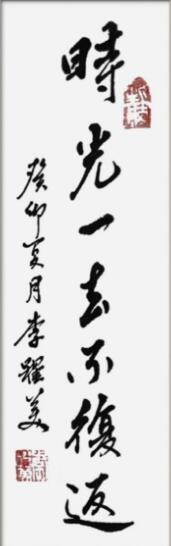 時光一去不復返
癸卯夏月李躍美